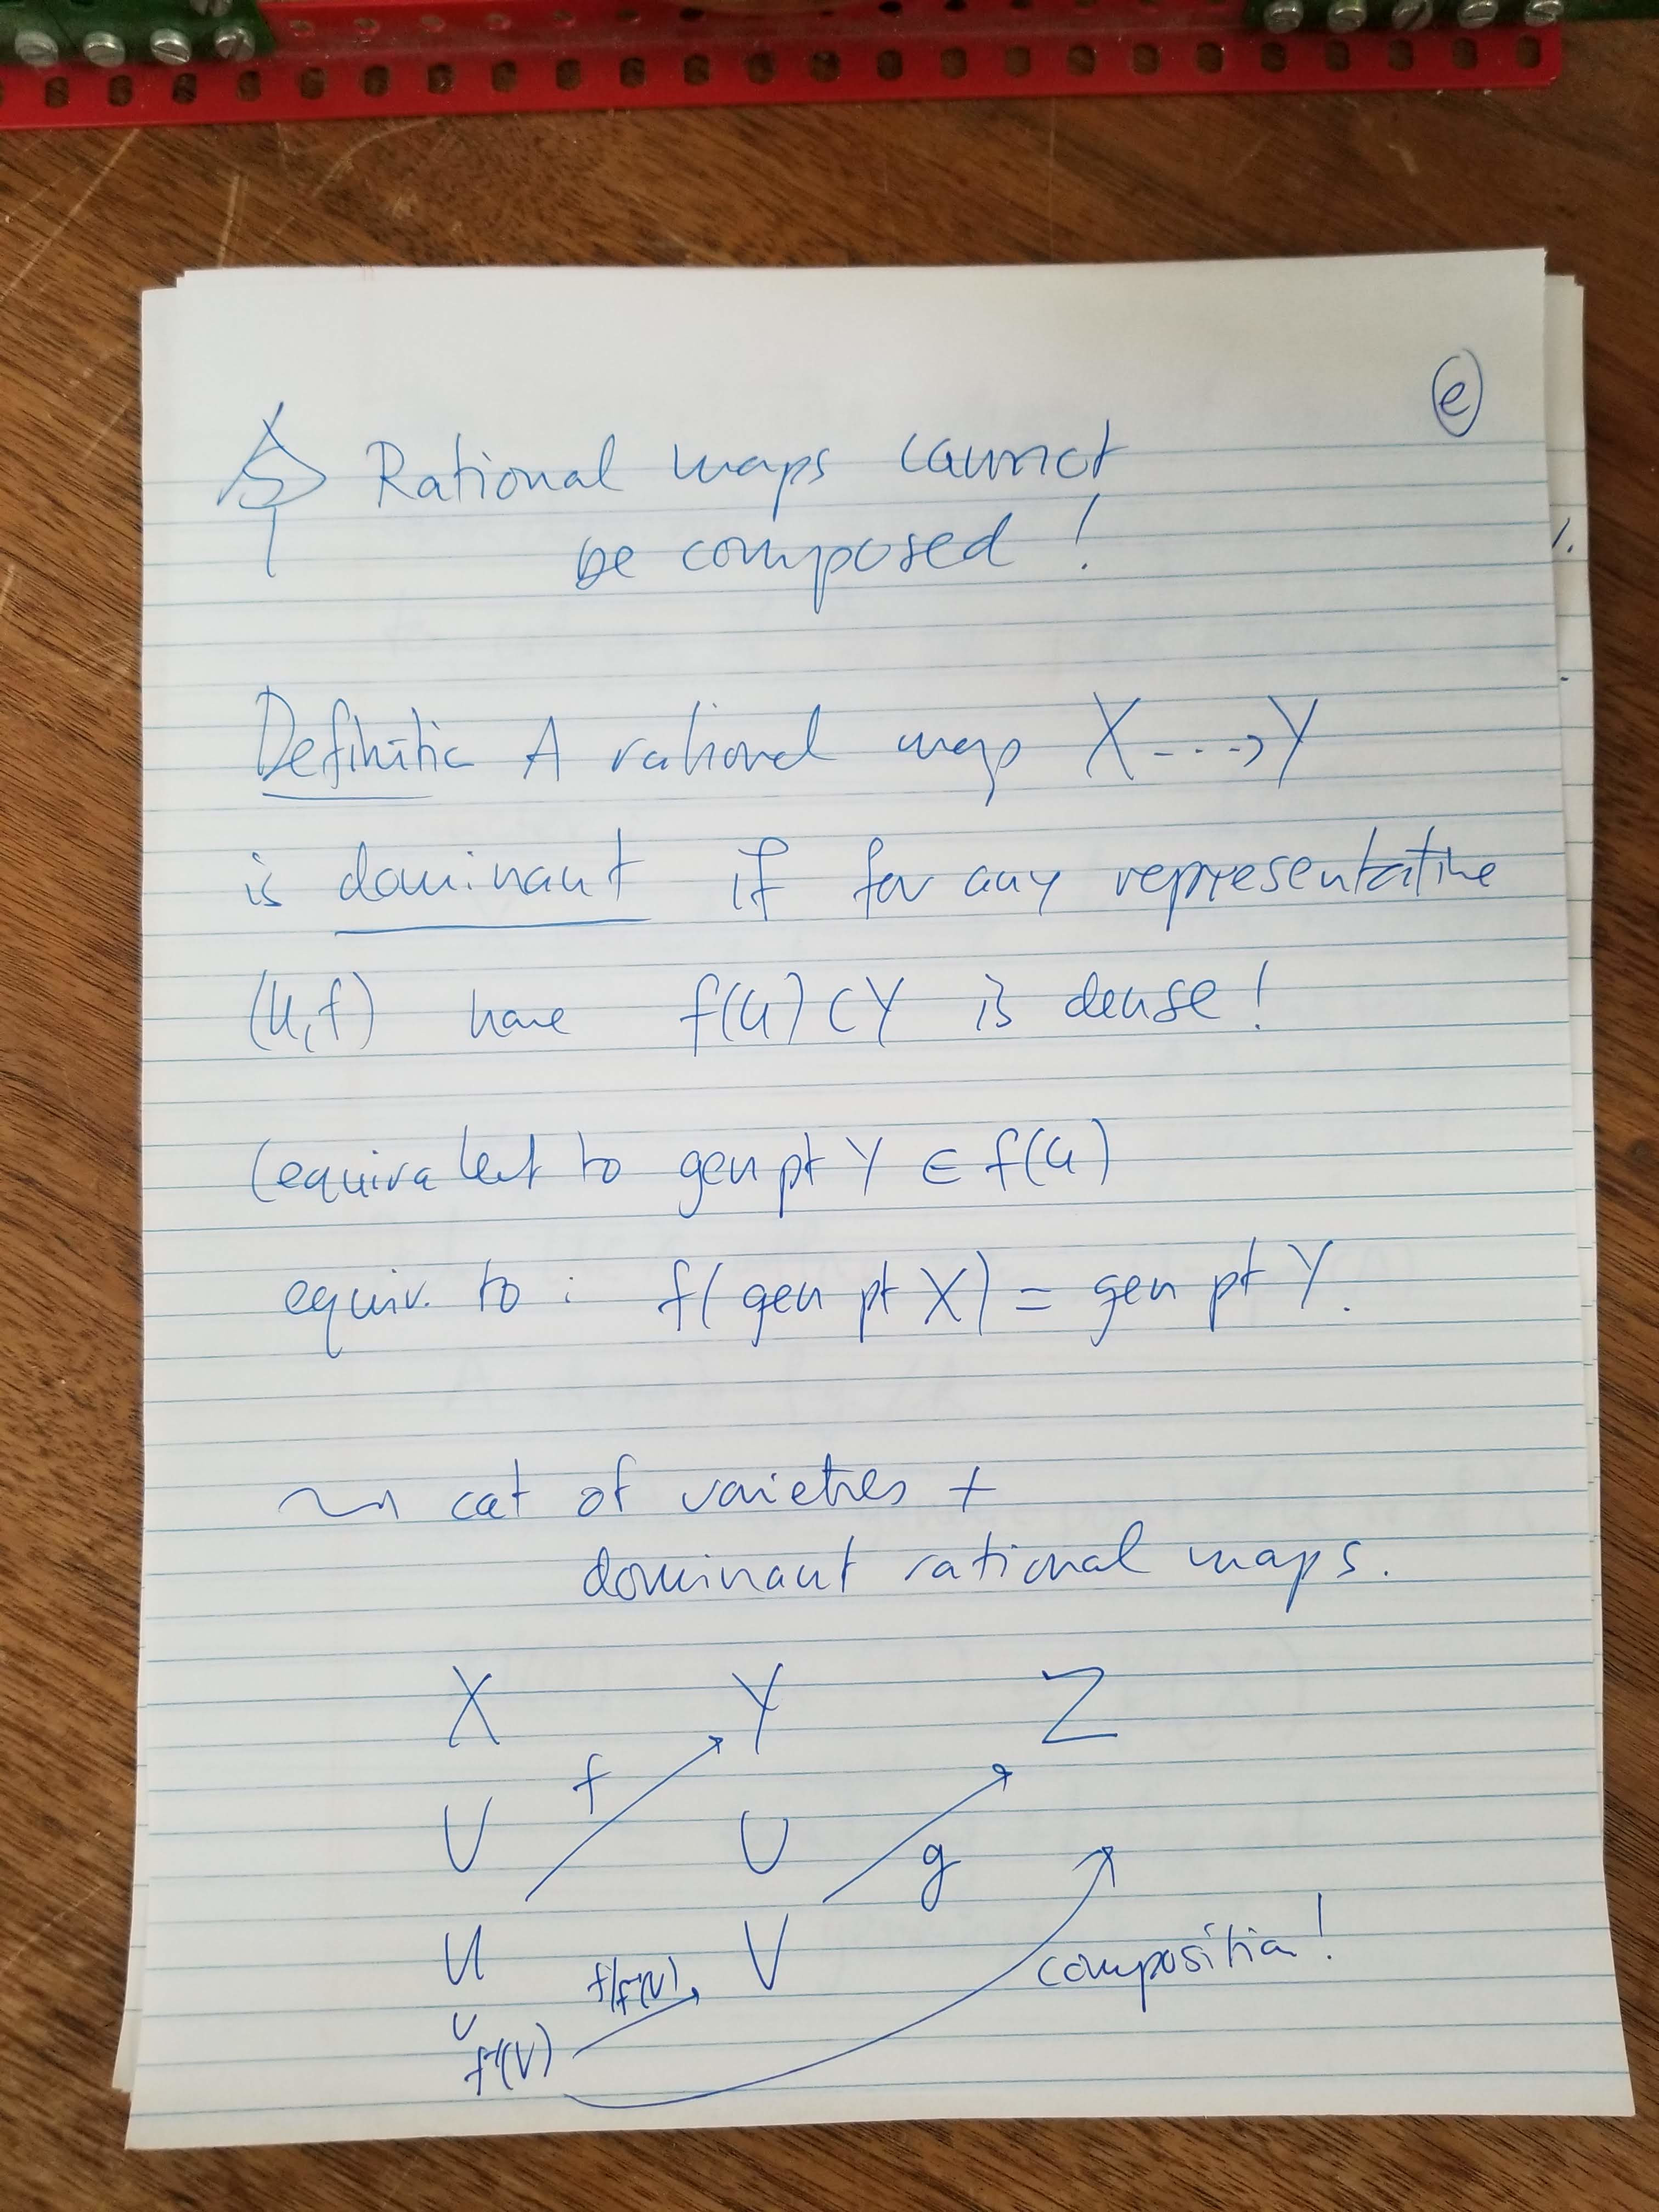 e
Rational maps cannot
be composed!
Definitio A rational map X ---> Y
is dominant if for any representative
(U,f) have f(U) ⊂ Y is dense!
(equivalent to gen pt Y ∈ f(U)
equiv. to : f( gen pt X) = gen pt Y.
⇝ cat of varieties +
dominant rational maps.
X Y Z
f
∪ ∪ g
U f|f⁻¹(V) V composition!
∪
f⁻¹(V)